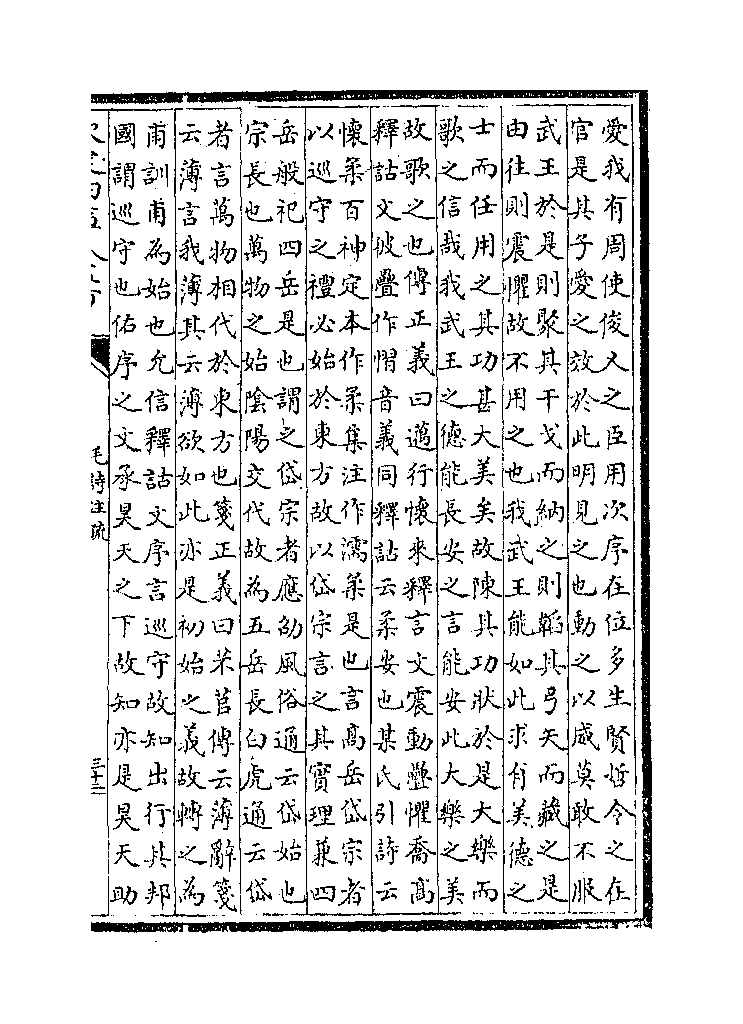 愛我有周使俊乂之臣用次序在位多生賢哲令之在
官是其子愛之效於此明見之也動之以威莫敢不服
武王於是則聚其干戈而納之則韜其弓矢而藏之是
由往則震懼故不用之也我武王能如此求有美德之
士而任用之其功甚大美矣故陳其功狀於是大樂而
歌之信哉我武王之德能長安之言能安此大樂之美
故歌之也傳正義曰邁行懷來釋言文震動疊懼喬高
釋詁文彼疊作慴音義同釋詁云柔安也某氏引詩云
懷柔百神定本作柔集注作濡柔是也言高岳岱宗者
以巡守之禮必始於東方故以岱宗言之其實理兼四
岳般祀四岳是也謂之岱宗者應劭風俗通云岱始也
宗長也萬物之始陰陽交代故為五岳長白虎通云岱
者言萬物相代於東方也箋正義曰芣苢傳云薄辭箋
云薄言我薄其云薄欲如此亦是初始之義故轉之為
甫訓甫為始也允信釋詁文序言巡守故知出行其邦
國謂巡守也佑序之文承昊天之下故知亦是昊天助
毛詩注疏
三十二